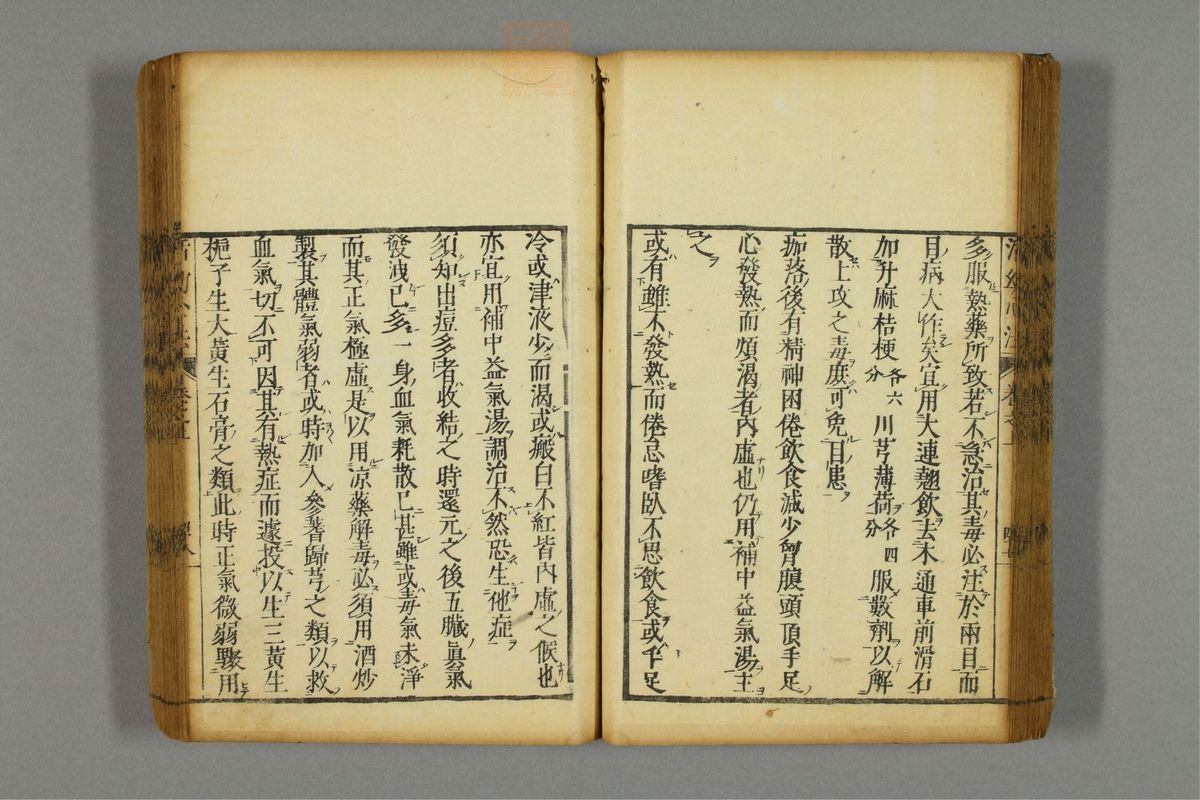 多服熱藥所致若不急治其毒必注於兩目而
目病大作矣宜用大連翹飲去木通車前滑石
加升麻桔梗各六分川芎薄荷各四分服數劑以解
散上攻之毒庶可免目患
痂落後有精神困倦飲食減少胷腹頭頂手足
心發熱而煩渴者內虛也仍用補中益氣湯主
之
或有雖不發熱而倦怠嗜臥不思飲食或手足
冷或津液少而渴或瘢白不紅皆內虛之候也
亦宜用補中益氣湯調治不然恐生他症
須知出痘多者收結之時還元之後五臟眞氣
發洩已多一身血氣耗散已甚雖或毒氣未淨
而其正氣極虛是以用凉藥解毒必須用酒炒
製其體氣弱者或時加入參蓍歸芎之類以救
血氣切不可因其有熱症而遽投以生三黃生
梔子生大黃生石膏之類此時正氣微弱驟用